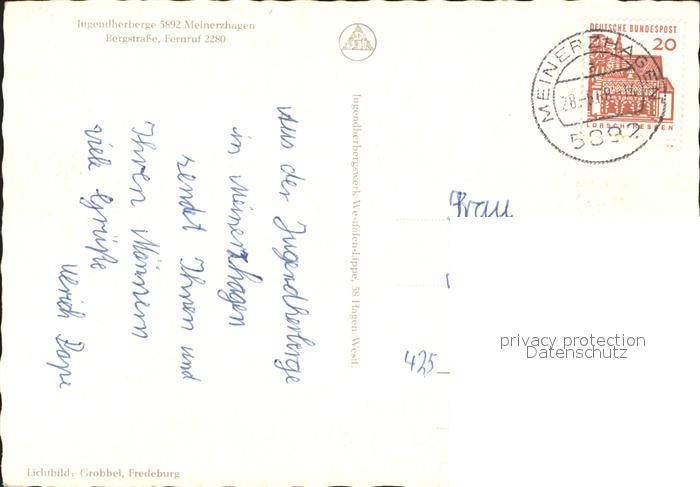 Jugendherberge 5892 Meinerzhagen
Bergstraße, Fernruf 2280
Aus der Jugendherberge
in Meinerzhagen
sendet Ihnen und
Ihren Männern
viele Grüße
Ulrich
Jugendherbergswerk Westfalen-Lippe, 58 Hagen-Westf.
DEUTSCHE BUNDESPOST
20
LORSCH HESSEN
MEINERZHAGEN
5892
Frau
425
privacy protection
Datenschutz
Lichtbild: Grobbel, Fredeburg